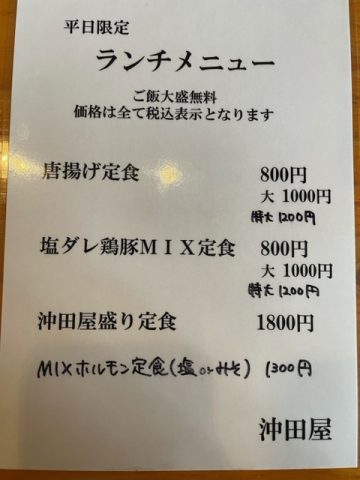 平日限定
ランチメニュー
ご飯大盛無料
価格は全て税込表示となります
唐揚げ定食 800円
大 1000円
特大 1200円
塩ダレ鶏豚MIX定食 800円
大 1000円
特大 1200円
沖田屋盛り定食 1800円
MIXホルモン定食(塩orみそ) 1300円
沖田屋